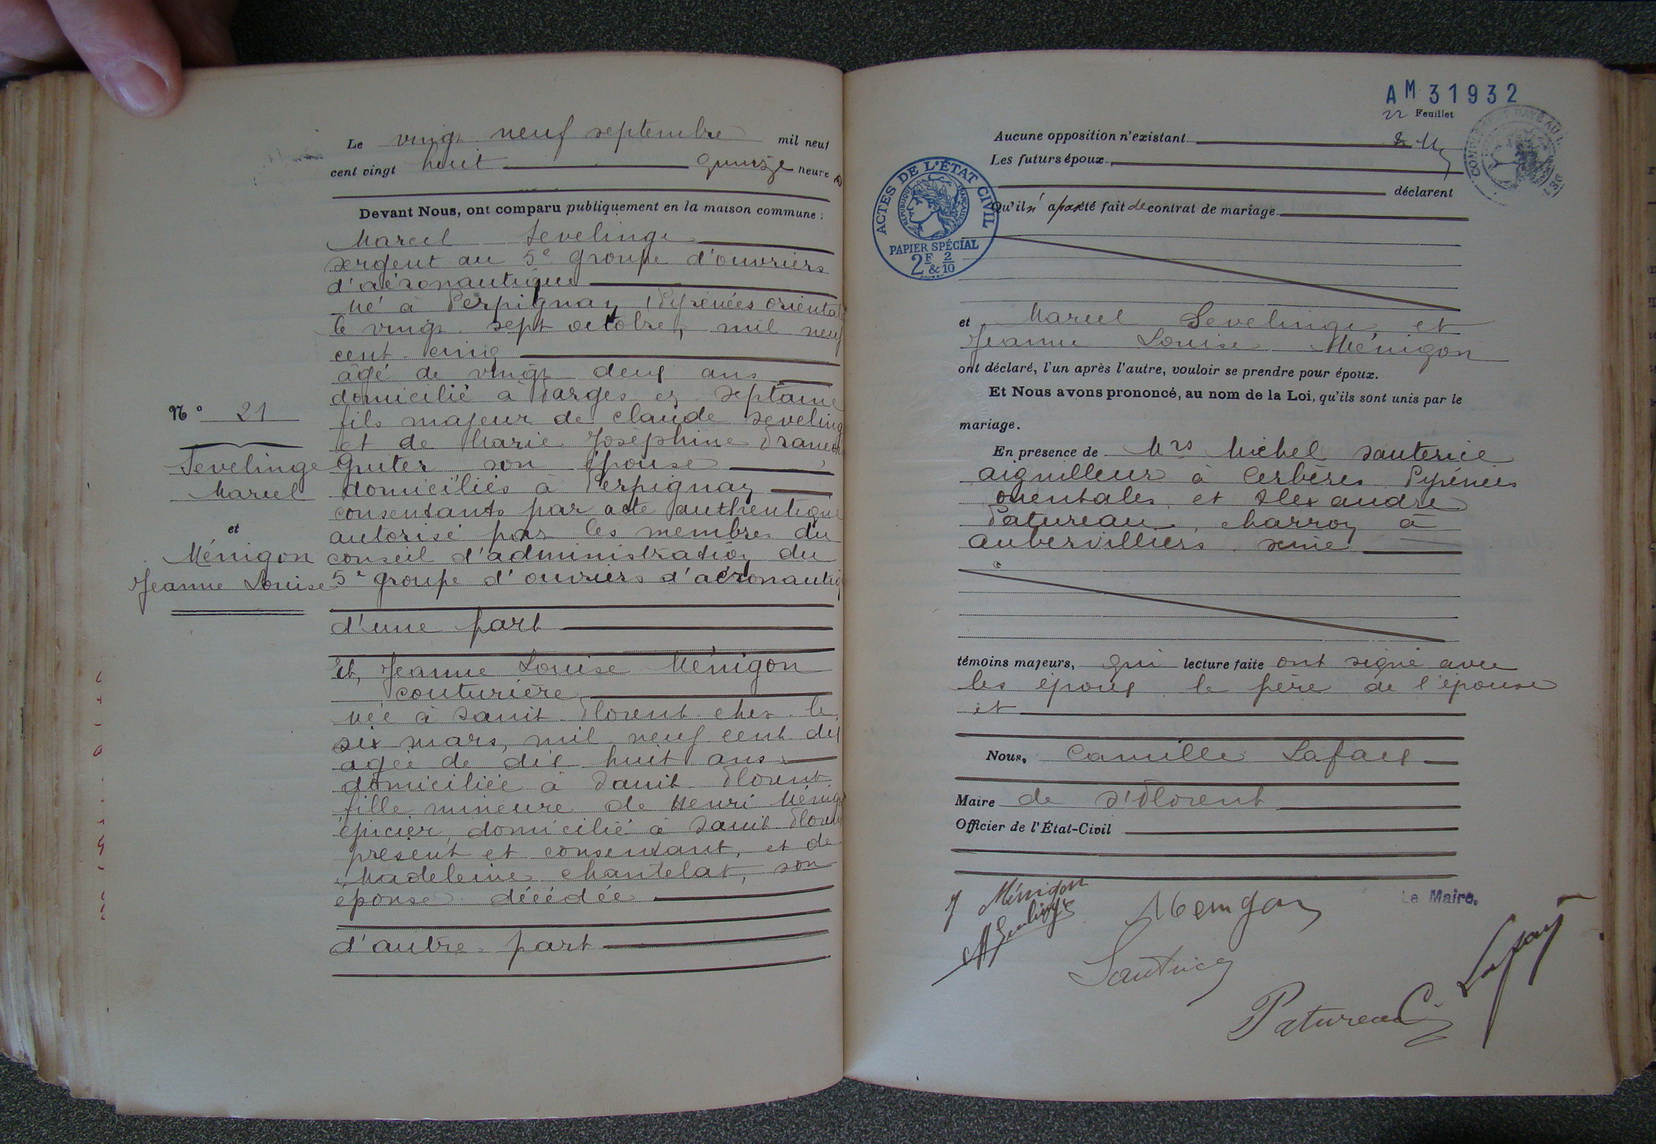 Le vingt neuf septembre mil neuf
cent vingt huit quinze heures
Devant Nous, ont comparu publiquement en la maison commune :
Marcel Sevelinge
sergent au 5e groupe d'ouvriers
d'aéronautique
né à Perpignan (Pyrénées orientales
le vingt sept octobre, mil neuf
cent cinq
âgé de vingt deux ans
domicilié à Farges en Septaine
fils majeur de Claude Seveling
et de Marie Joséphine
Gruter son épouse
domiciliés à Perpignan
consentants par acte authentique
autorisé par les membres du
conseil d'administration du
5e groupe d'ouvriers d'aéronautiq
d'une part
N° 21
Sevelinge
Marcel
et
Ménigon
Jeanne Louise
Et, Jeanne Louise Ménigon
couturière
née à Saint Florent cher le
six mars, mil neuf cent dix
agée de dix huit ans
domiciliée à Saint Florent
fille mineure de Henri Ménig
épicier, domicilié à Saint Floren
présent et consentant, et de
Madeleine Chantelat, son
épouse décédée
d'autre part
AM 31932
22 Feuillet
Aucune opposition n'existant
Les futurs époux
déclarent
Qu'il n'a pas été fait de contrat de mariage
ACTES DE L'ÉTAT CIVIL
RÉPUBLIQUE FRANÇAISE
PAPIER SPÉCIAL
2F & 2/10
et Marcel Sevelinge et
Jeanne Louise Ménigon
ont déclaré, l'un après l'autre, vouloir se prendre pour époux.
Et Nous avons prononcé, au nom de la Loi, qu'ils sont unis par le
mariage.
En présence de Mrs Michel Sauterice
aiguilleur à Cerbères Pyrénées
orientales et Alexandre
Patureau, charron à
aubervilliers seine
témoins majeurs, qui lecture faite ont signé avec
les époux le père de l'épouse
et
Nous, Camille Lafaix
Maire de St Florent
Officier de l'État-Civil
Le Maire,
J Ménigon
Menigon
Patureau